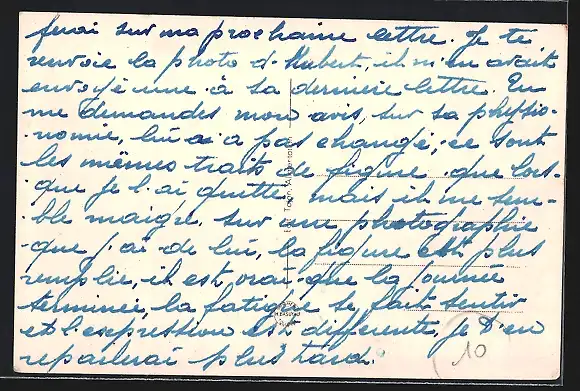 ferai sur ma prochaine lettre. Je te
renvoie la photo d'Hubert, il m'en avait
envoyé une à sa dernière lettre. Tu
me demandes mon avis, sur sa physio-
-nomie, lui a pas changé, ce sont
les mêmes traits de figure que lors-
que je l'ai quitté mais il me sem-
-ble maigre. sur une photographie
que j'ai de lui, la figure est plus
remplie, il est vrai que la journée
terminée, la fatigue se fait sentir
et l'expression est différente, Je t'en
reparlerai plus tard.
10